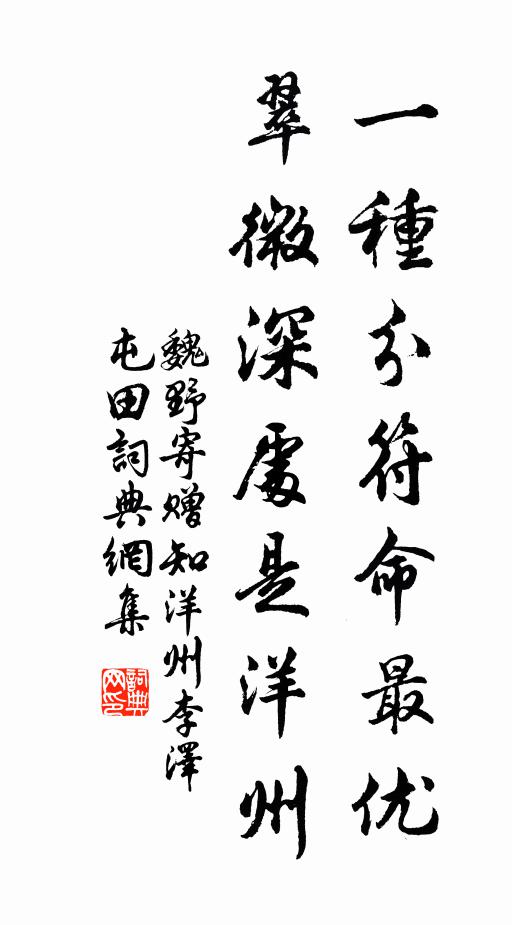 一種分符命最优
翠微深處是洋州
魏野寄赠知洋州李澤
屯田詞典網集
詞典
网印